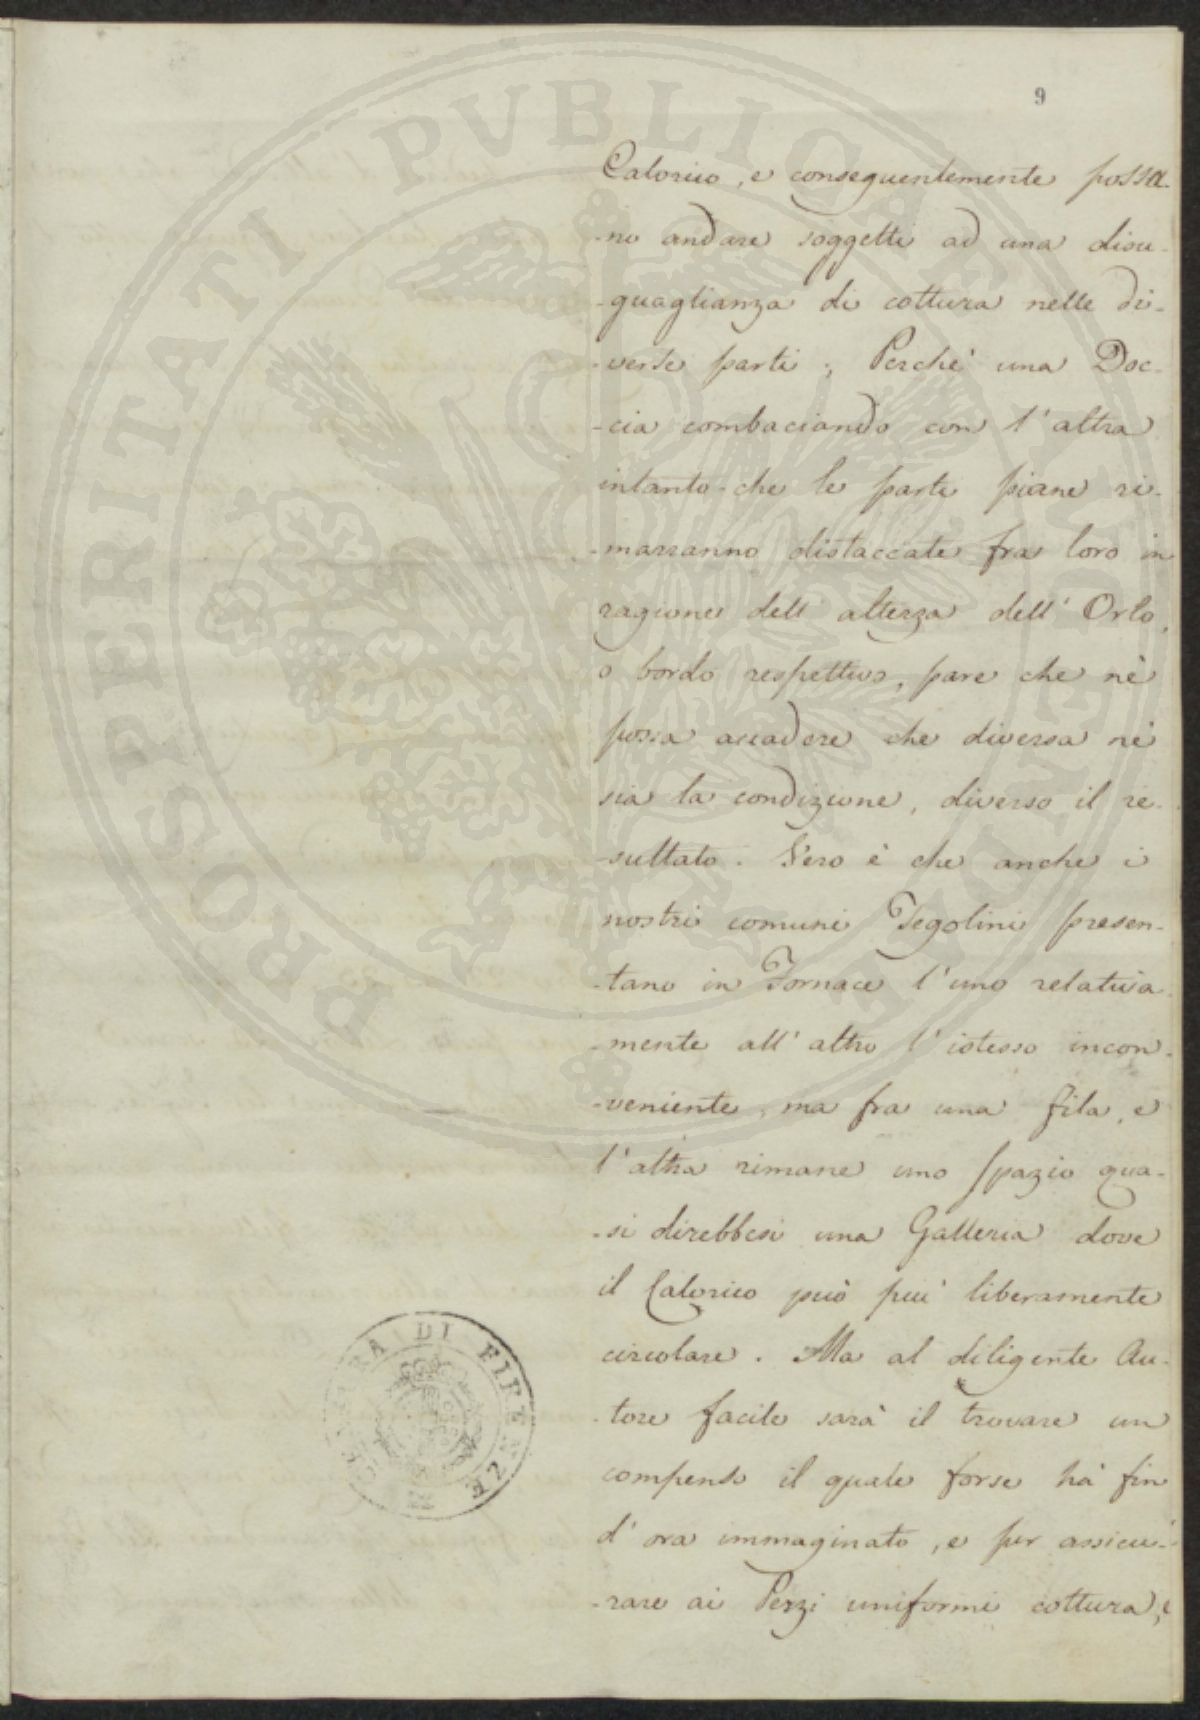 9
Calorico, e conseguentemente possa-
-no andare soggetti ad una disu-
-guaglianza di cottura nelle di-
-verse parti; Perchè una Doc-
-cia combaciando con l'altra
intanto che le parti piane ri-
-marranno distaccate fra loro in
ragione dell'altezza dell'Orlo,
o bordo respettivo, pare che nè
possa accadere che diversa nè
sia la condizione, diverso il re-
-sultato. Vero è che anche i
nostri comuni Tegolini presen-
-tano in Fornace l'uno relativa-
-mente all'altro l'istesso incon-
-veniente, ma fra una fila, e
l'altra rimane uno spazio qua-
-si direbbesi una Galleria dove
il Calorico può più liberamente
circolare. Ma al diligente Au-
-tore facile sarà il trovare un
compenso il quale forse hà fin
d'ora immaginato, e per assicu-
-rare ai Pezzi uniformi cottura, e
PROSPERITATI PVBLICAE
DI FIRENZE